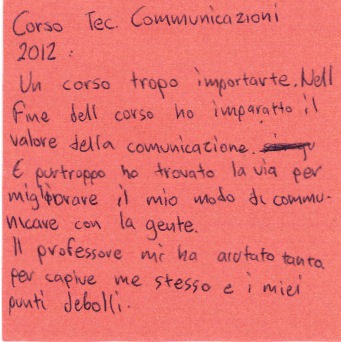 Corso Tec. Communicazioni
2012:
Un corso tropo importarte. Nell
Fine dell corso ho imparatto il
valore della comunicazione.
E purtroppo ho trovato la via per
migliorare il mio modo di commu-
nicare con la gente.
Il professore mi ha aiutato tanto
per capire me stesso e i miei
punti debolli.